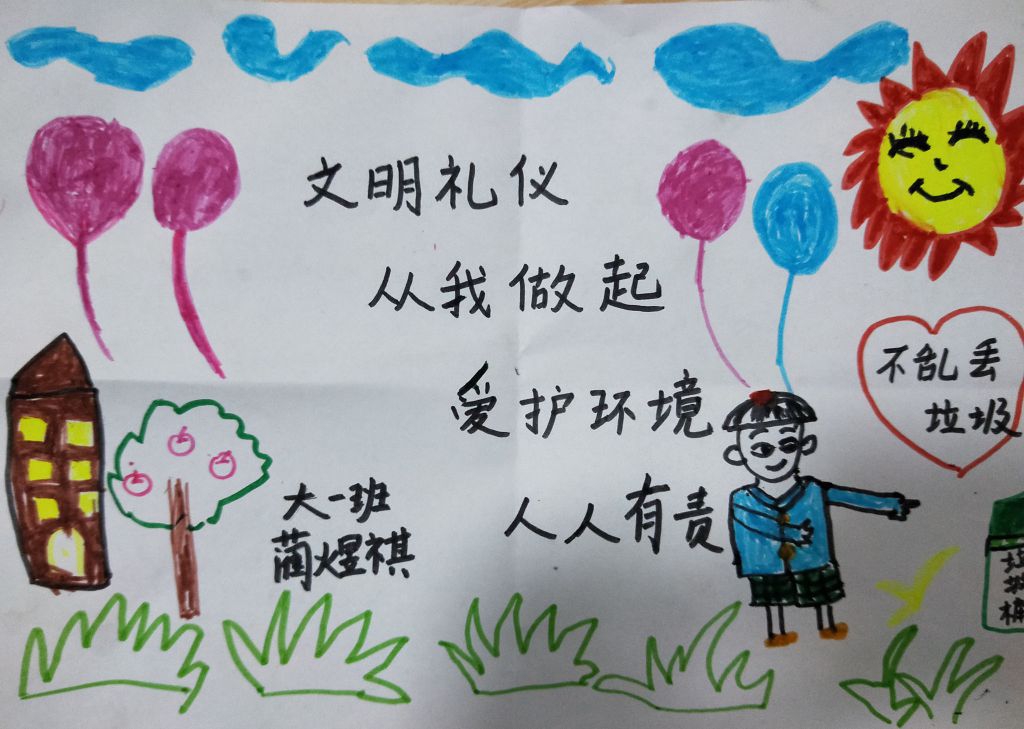 文明礼仪
从我做起
爱护环境
人人有责
不乱丢
垃圾
大一班
蔺煜祺
垃圾桶